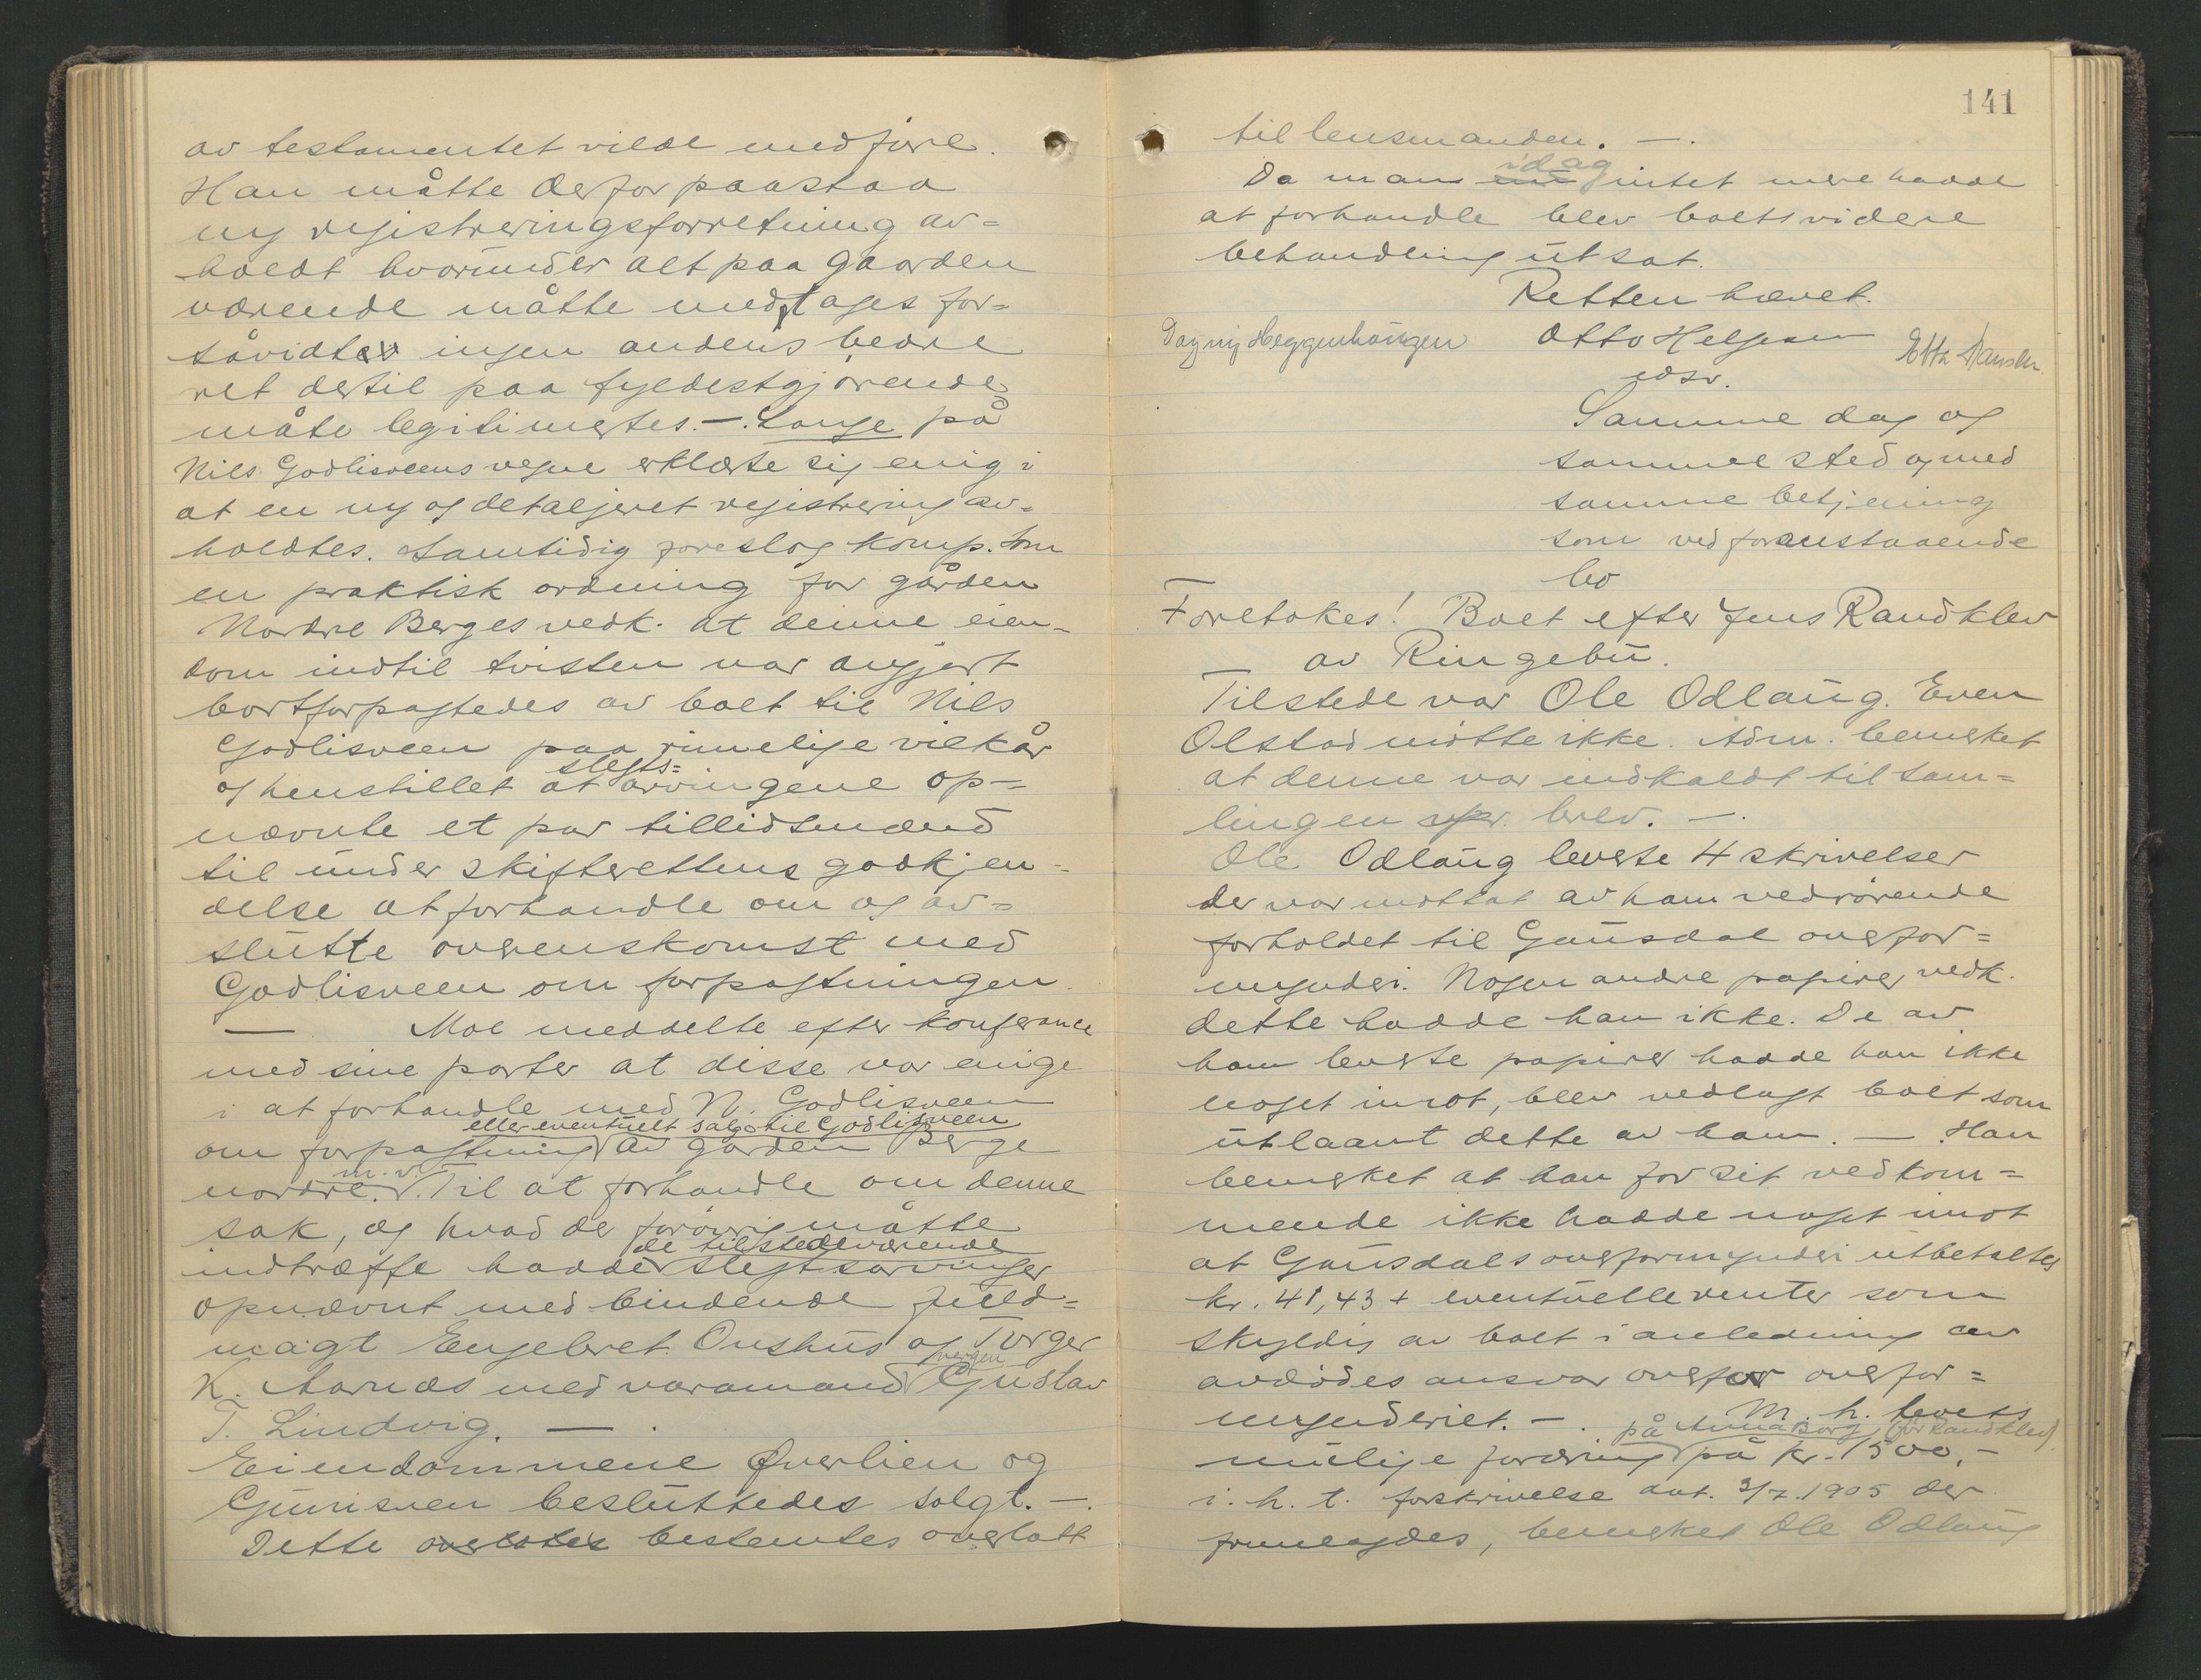 av testamentet vilde medføre.
Han måtte derfor paastaa
ny registreringsforretning av=
holdt hvorunder alt paa gaarden
værende måtte medtages for=
såvidt ingen andens bedre
ret dertil paa fyldestgjørende
måte legitimertes. —. Lange på
Nils Godlisveens vegne erklærte sig enig i
at en ny og detaljeret registrering av=
holdtes. Samtidig foreslog komp. som
en praktisk ordning for gården
Nordre Berges vedk. at denne eien=
dom indtil tvisten var avgjort
bortforpagtedes av boet til Nils
Godlisveen paa rimelige vilkår
og henstillet at slegts=arvingene op=
nævnte et par tillidsmænd
til under skifterettens godkjen=
delse at forhandle om og av=
slutte overenskomst med
Godlisveen om forpagtningen.
— Moe meddelte efter konferance
med sine parter at disse var enige
i at forhandle med N. Godlisveen
om forpagtning eller eventuelt salg til Godlisveen av gården Berge
nordre m.v. Til at forhandle om denne
sak, og hvad der forøvrig måtte
indtræffe hadde de tilstedeværende slegtsarvinger
opnævnt med bindende fuld=
magt Engebret Onshus og Torger
K. Aarnæs med varamand vergen Gustav
T. Lindvig. — .
Eiendommene Øverlien og
Gunisveen besluttedes solgt. —.
Dette overlotes bestemtes overlatt
141
til lensmanden. —.
Da man nu idag intet mere hadde
at forhandle blev boets videre
behandling utsat.
Retten hævet.
Dagny Heggenhaugen Otto Helgesen Etta Hansen
edsv.
Samme dag og
samme sted og med
samme betjening
som ved foranstaaende
bo
Foretokes! Boet efter Jens Randklev
av Ringebu.
Tilstede var Ole Odlaug. Even
Olstad møtte ikke. Adm. bemerket
at denne var indkaldt til sam=
lingen pr. brev. —.
Ole Odlaug leverte 4 skrivelser
der var mottat av ham vedrørende
forholdet til Gausdal overfor=
mynderi. Nogen andre papirer vedk.
dette hadde han ikke. De av
ham leverte papirer hadde han ikke
noget imot, blev vedlagt boet som
utlaant dette av ham. — Han
bemerket at han for sit vedkom=
mende ikke hadde noget imot
at Gausdals overformynderi utbetaltes
kr. 41,43 + eventuelle renter som
skyldig av boet i anledning av
avdødes ansvar overfor overfor=
mynderiet. —. M. h. t. boets
mulige fordring på Anna Borg (før Randklev) på kr. 1500,-
i. h. t. forskrivelse dat. 3/7. 1905 der
fremlagdes, bemerket Ole Odlaug